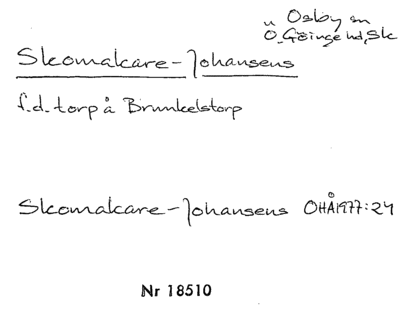 n Osby sn
Ö. Göinge hd, Sk
Skomakare-Johansens
f.d. torp å Brunkelstorp
Skomakare-Johansens OHÅ1977:24
Nr 18510